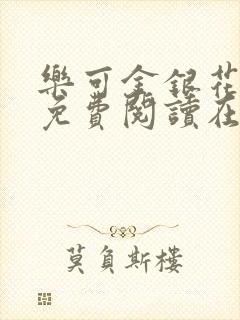 樂可金銀花
免費閱讀在
莫負斯樓